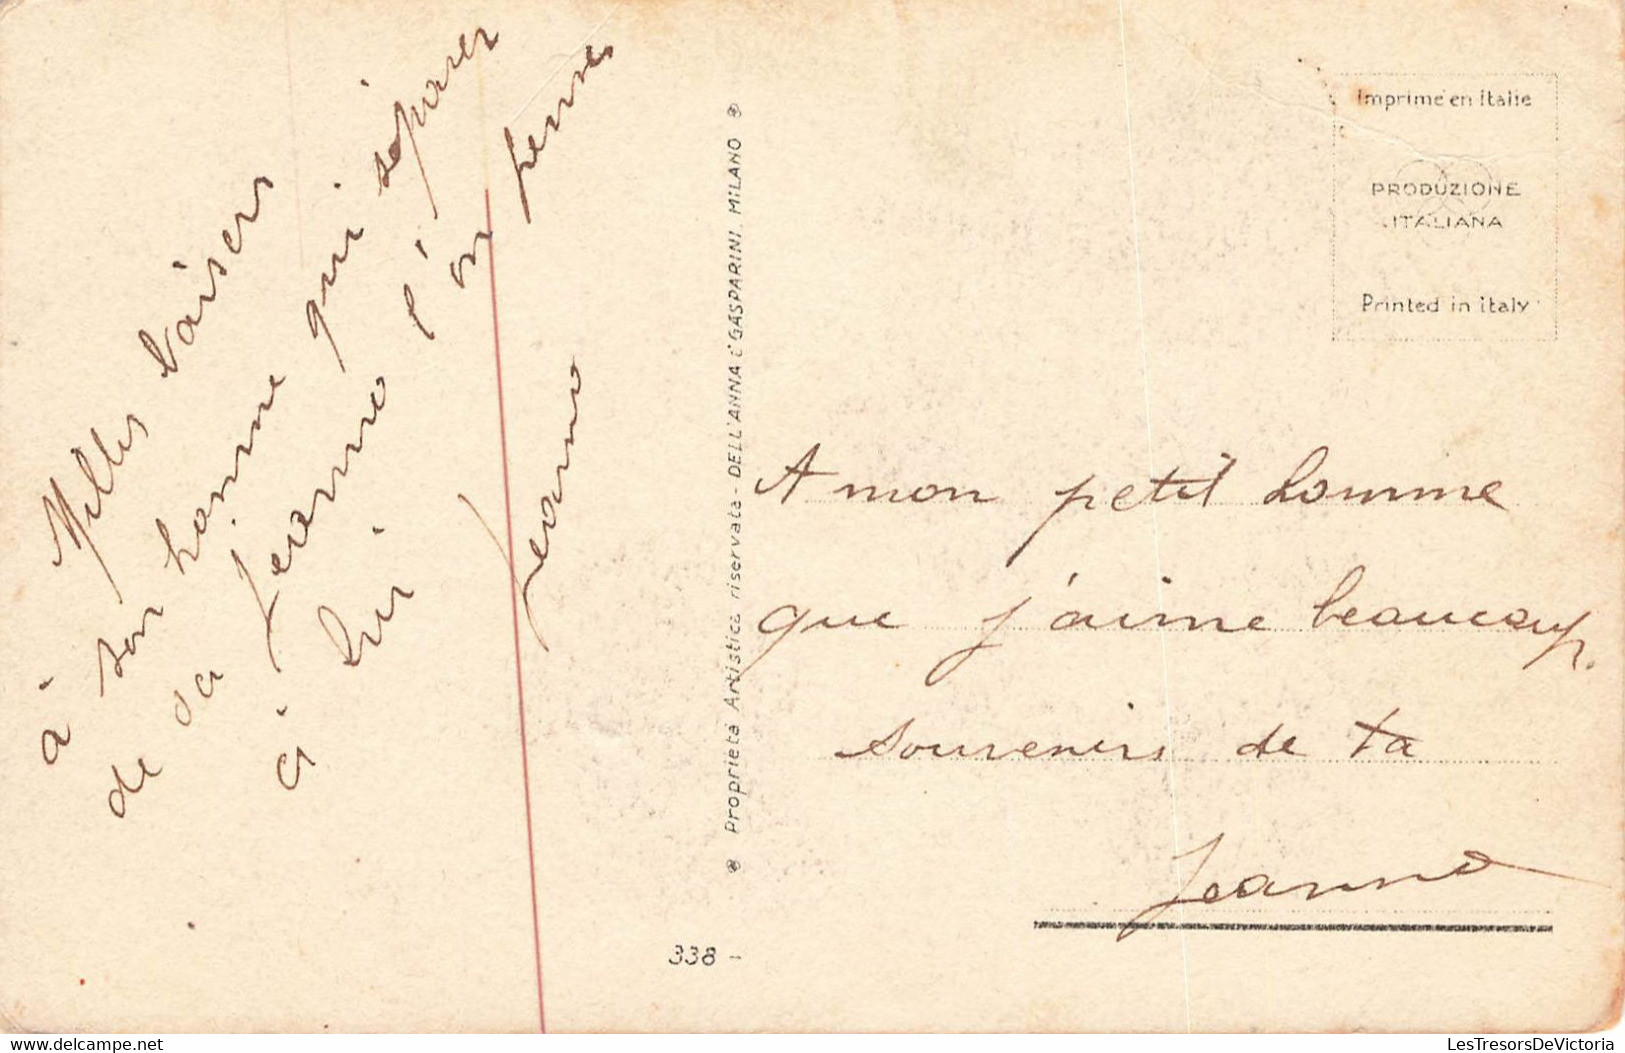 Milles baisers
à son homme qui séparer
de sa Jeanne l'
à lui on
Jeanne
Proprietà Artistica riservata - DELL'ANNA E GASPARINI, MILANO
338 -
Imprimé en Italie
PRODUZIONE
ITALIANA
Printed in Italy
A mon petit homme
que j'aime beaucoup.
souvenirs de ta
Jeanne
LesTresorsDeVictoria
delcampe.net